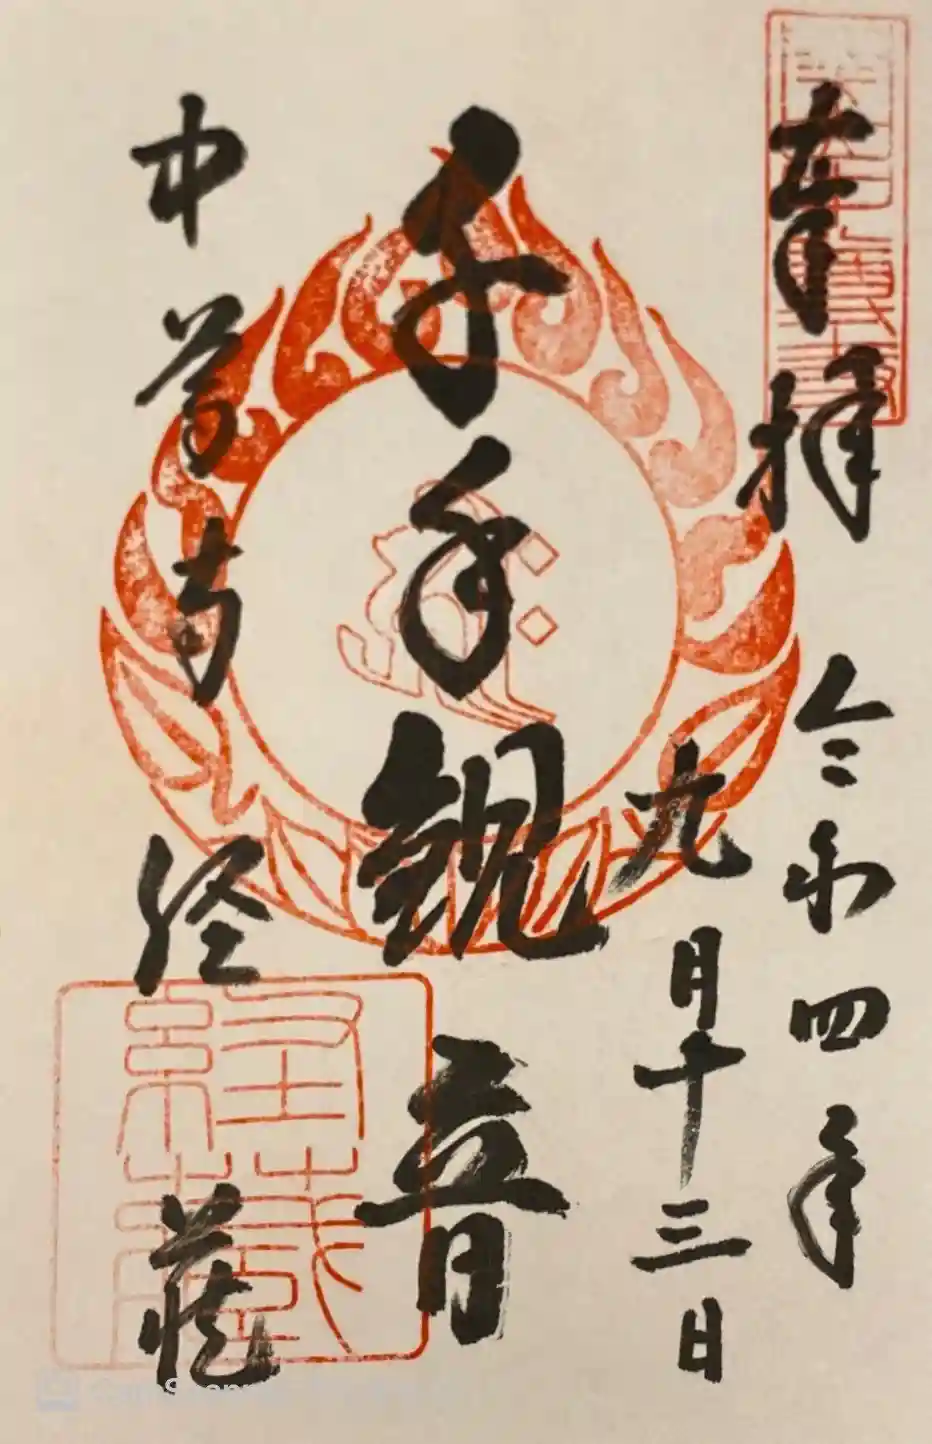 奉拝
令和四年
九月十三日
千手観音
中尊寺 経蔵
経蔵